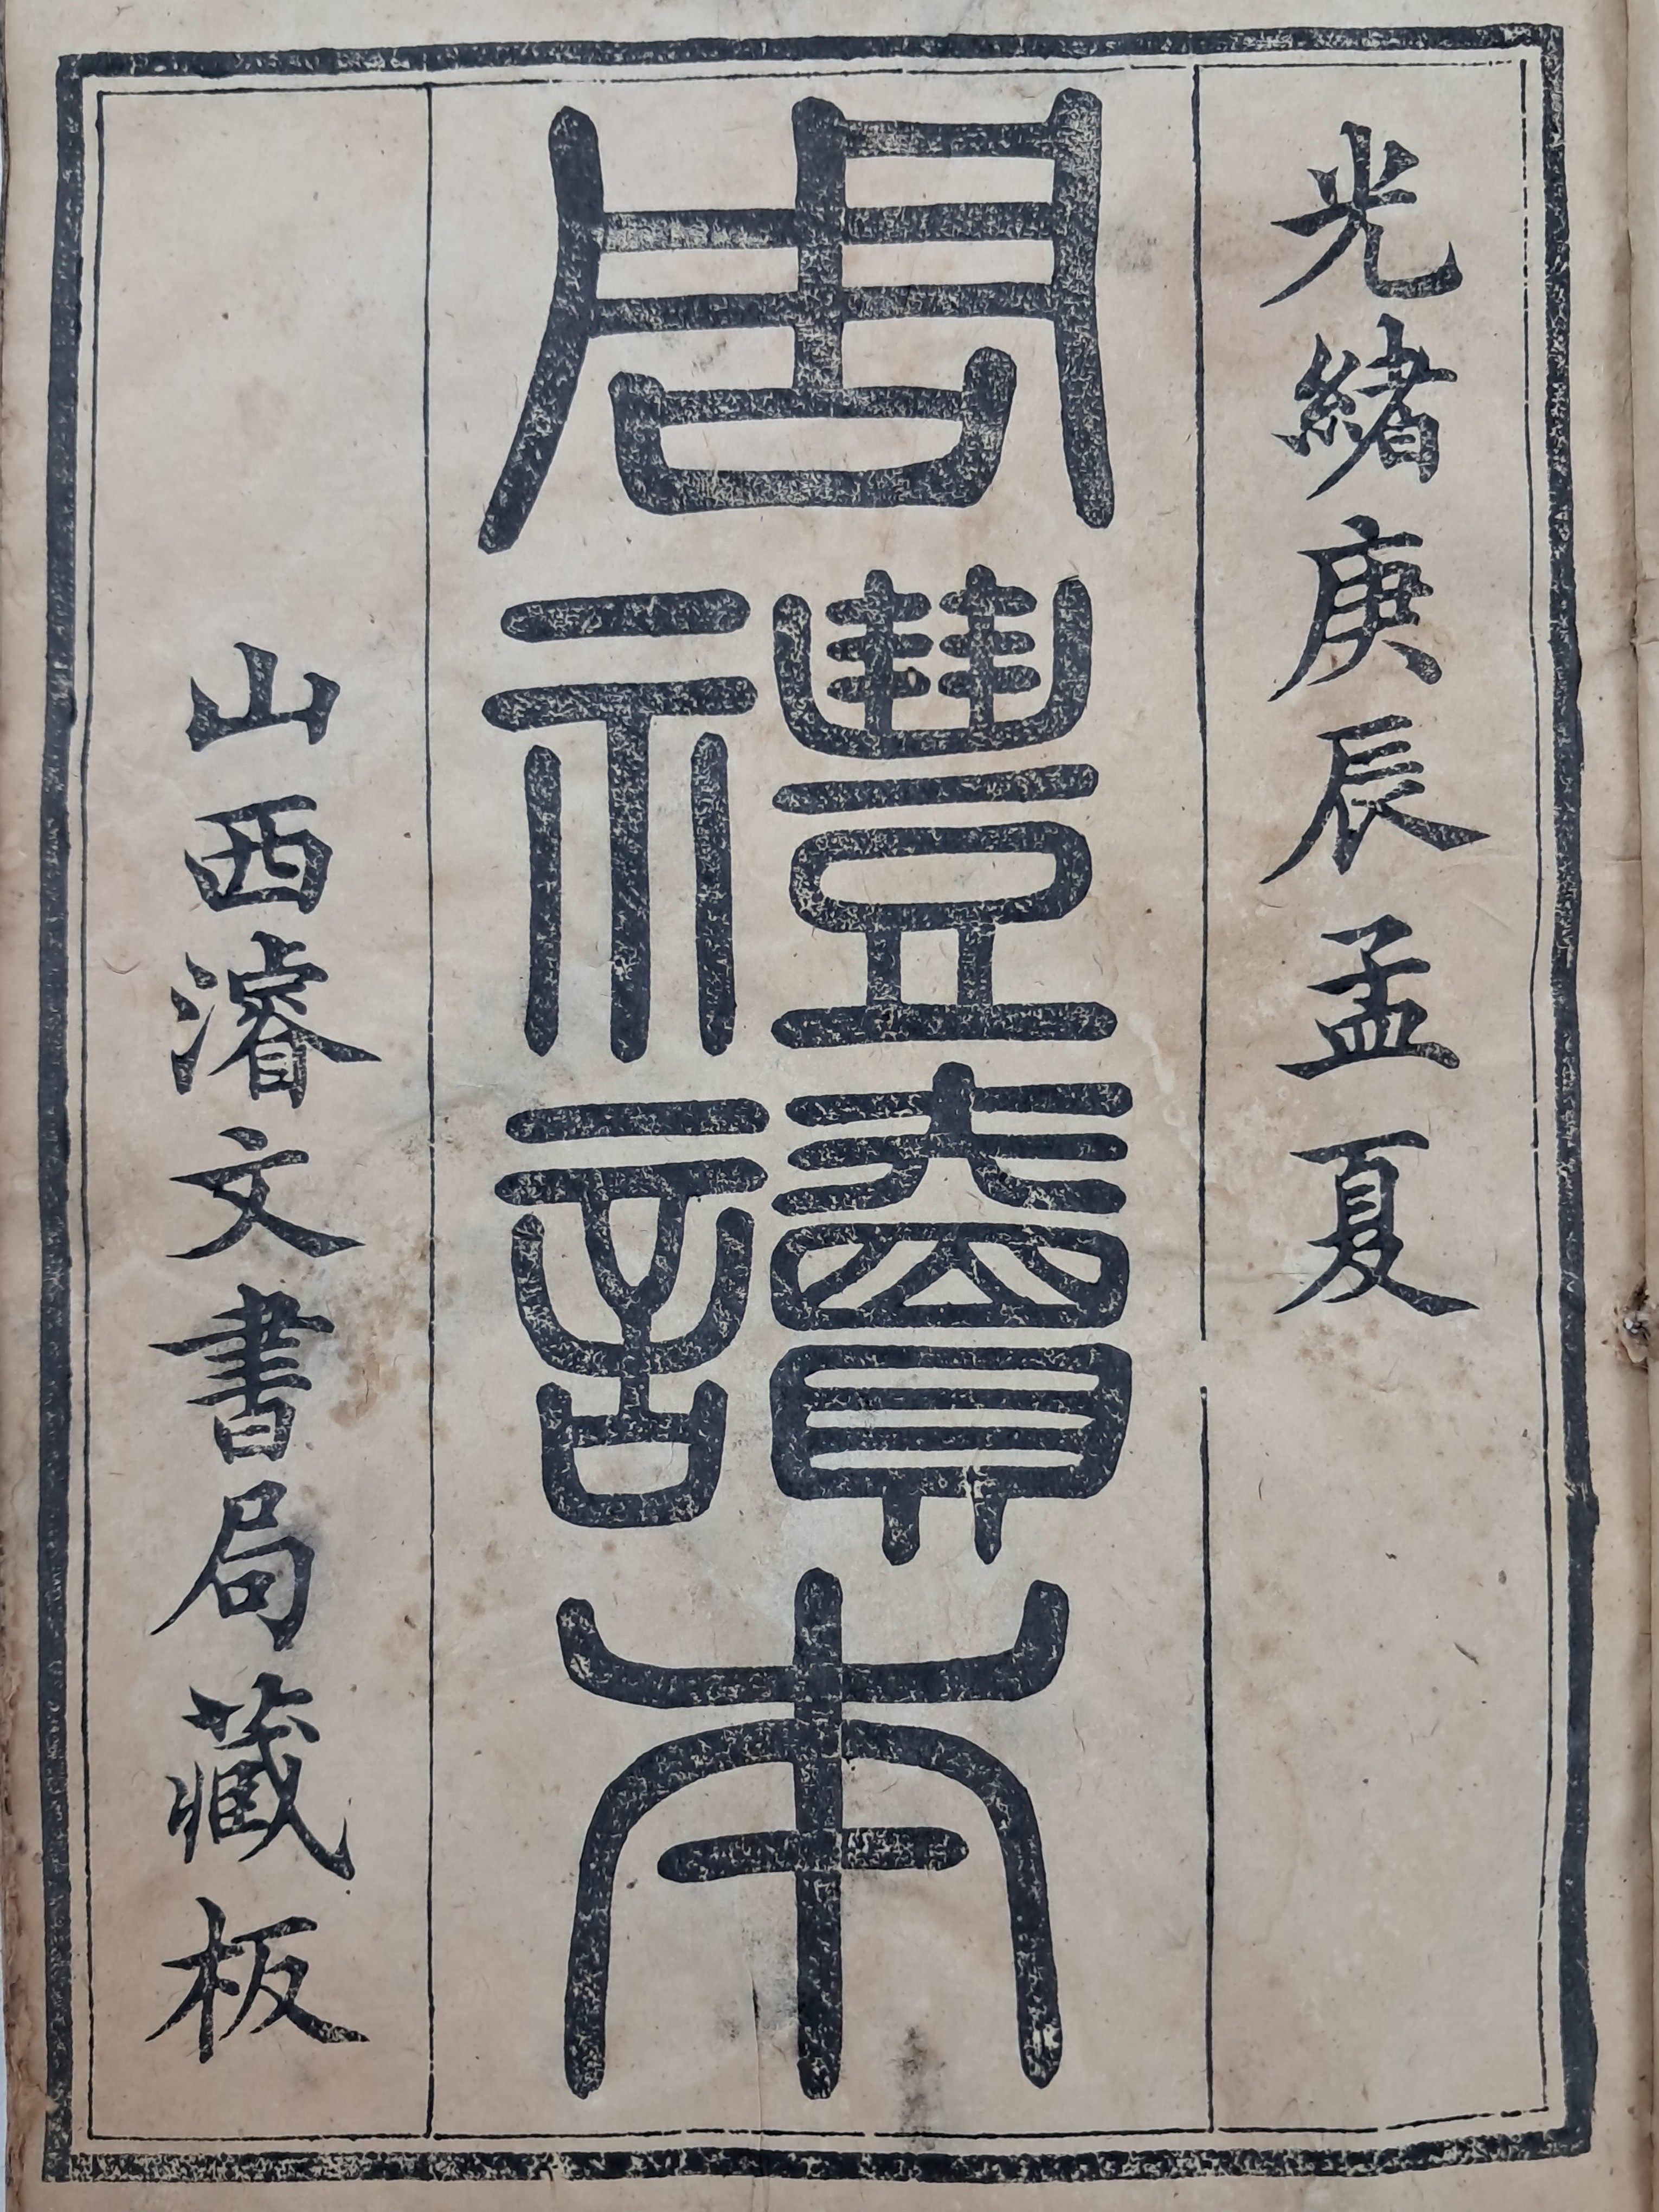 光緒庚辰孟夏
周禮讀本
山西濬文書局藏板